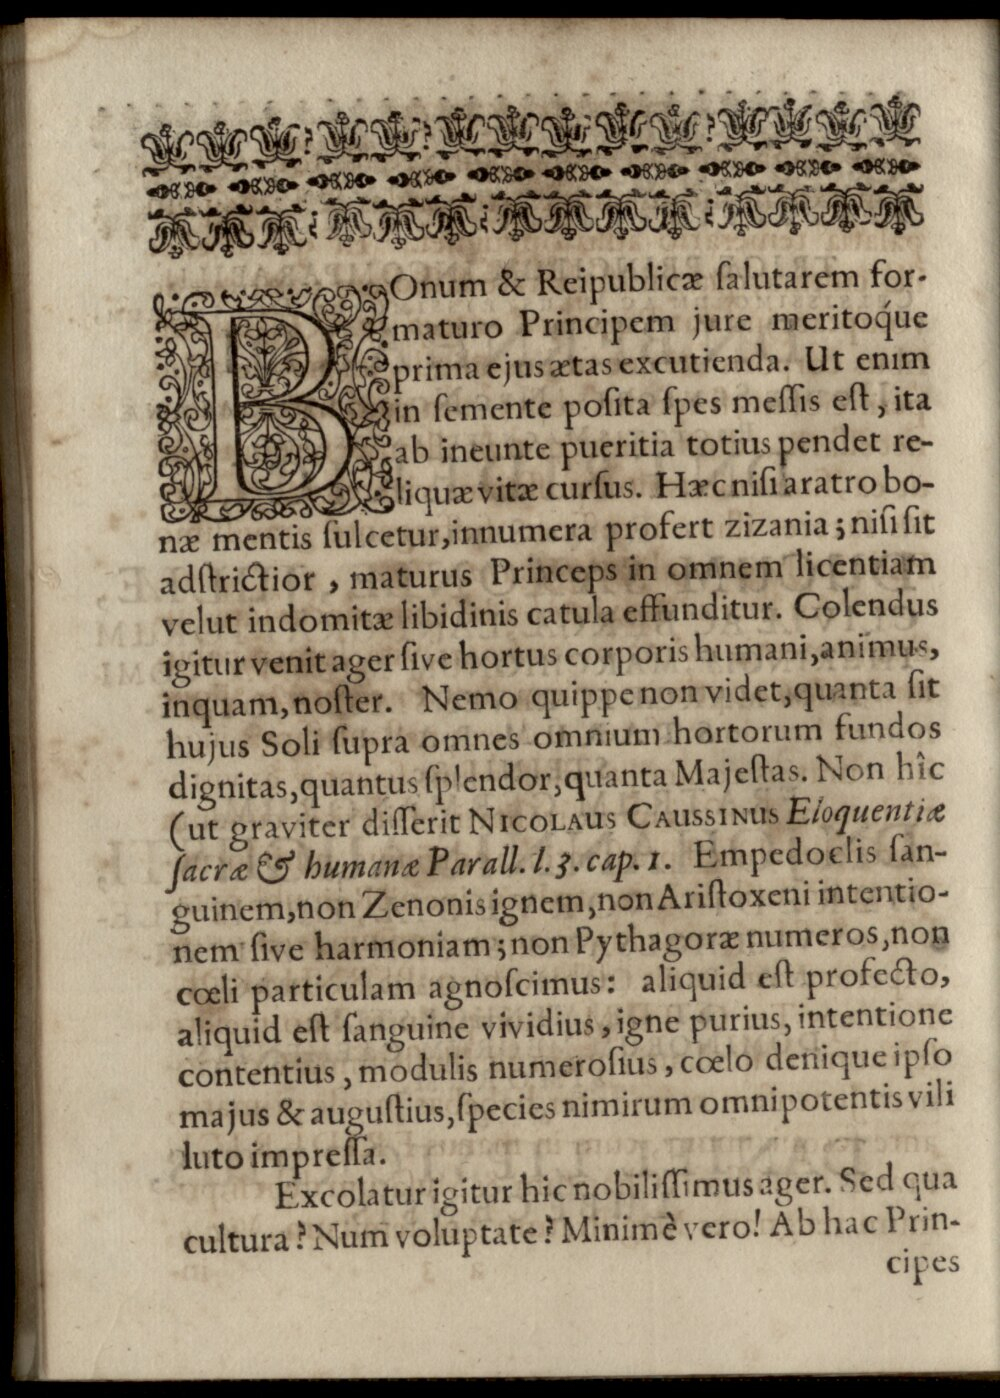 BOnum & Reipublicæ ſalutarem for-
maturo Principem jure meritoq́ue
prima ejus ætas excutienda. Ut enim
in ſemente poſita ſpes meſſis eſt, ita
ab ineunte pueritia totius pendet re-
liquæ vitæ curſus. Hæc niſi aratro bo-
næ mentis ſulcetur, innumera profert zizania; niſi ſit
adſtrictior, maturus Princeps in omnem licentiam
velut indomitæ libidinis catula effunditur. Colendus
igitur venit ager ſive hortus corporis humani, animus,
inquam, noſter. Nemo quippe non videt, quanta ſit
hujus Soli ſupra omnes omnium hortorum fundos
dignitas, quantus ſplendor, quanta Majeſtas. Non hîc
(ut graviter diſſerit NICOLAUS CAUSSINUS Eloquentiæ
ſacræ & humanæ Parall. l. 3. cap. 1. Empedoclis ſan-
guinem, non Zenonis ignem, non Ariſtoxeni intentio-
nem ſive harmoniam; non Pythagoræ numeros, non
cœli particulam agnoſcimus: aliquid eſt profecto,
aliquid eſt ſanguine vividius, igne purius, intentione
contentius, modulis numeroſius, cœlo denique ipſo
majus & auguſtius, ſpecies nimirum omnipotentis vili
luto impreſſa.
Excolatur igitur hic nobiliſſimus ager. Sed qua
cultura? Num voluptate? Minimè vero! Ab hac Prin-
cipes